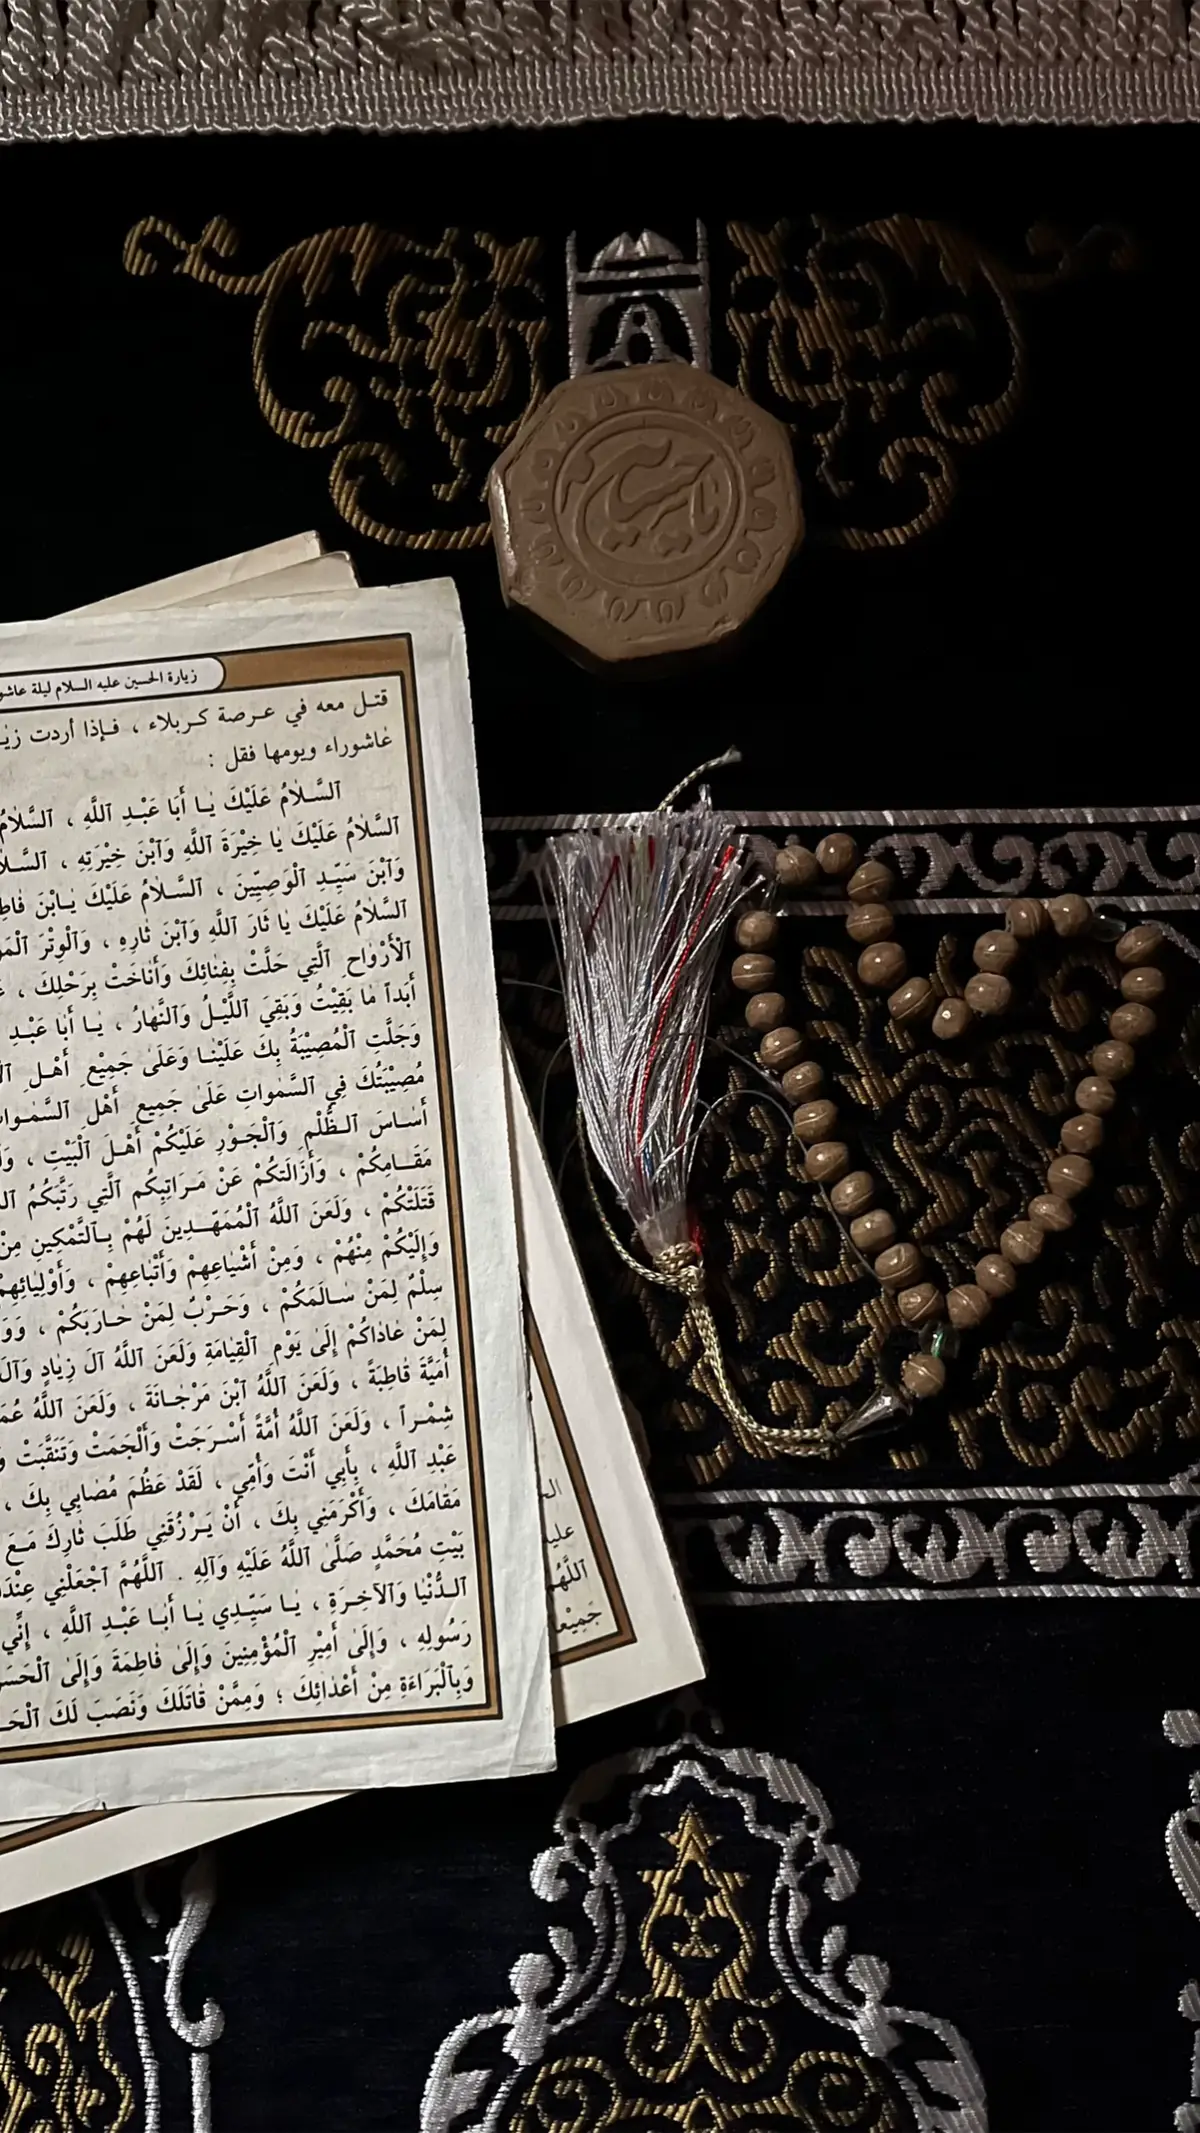 يا حسين
زيارة الحسين عليه السلام ليلة
قتل معه في عرصة كربلاء ، فإذا أردت
عاشوراء ويومها فقل :
ٱلسَّلاٰمُ عَلَيْكَ يٰا أَبَا عَبْدِ ٱللَّهِ ، ٱلسَّلاٰمُ
ٱلسَّلاٰمُ عَلَيْكَ يٰا خِيْرَةَ ٱللَّهِ وَٱبْنَ خِيْرَتِهِ ،
وَٱبْنَ سَيِّدِ ٱلْوَصِيِّينَ ، ٱلسَّلاٰمُ عَلَيْكَ يٰابْنَ
ٱلسَّلاٰمُ عَلَيْكَ يٰا ثٰارَ ٱللَّهِ وَٱبْنَ ثٰارِهِ ، وَٱلْوِتْرَ
ٱلْأَرْوٰاحِ ٱلَّتِي حَلَّتْ بِفِنٰائِكَ وَأَنٰاخَتْ بِرَحْلِكَ ،
أَبَداً مٰا بَقِيْتُ وَبَقِيَ ٱللَّيْلُ وَٱلنَّهٰارُ ، يٰا أَبٰا عَبْدِ
وَجَلَّتِ ٱلْمُصِيْبَةُ بِكَ عَلَيْنٰا وَعَلَىٰ جَمِيْعِ أَهْلِ
مُصِيْبَتُكَ فِي ٱلسَّمٰوٰاتِ عَلَىٰ جَمِيعِ أَهْلِ ٱلسَّمٰوٰاتِ
أَسٰاسَ ٱلظُّلْمِ وَٱلْجَوْرِ عَلَيْكُمْ أَهْلَ ٱلْبَيْتِ ،
مَقٰامِكُمْ ، وَأَزٰالَتْكُمْ عَنْ مَرٰاتِبِكُم ٱلَّتِي رَتَّبَكُمُ
قَتَلَتْكُمْ ، وَلَعَنَ ٱللَّهُ ٱلْمُمَهِّدِينَ لَهُمْ بِٱلتَّمْكِينِ مِنْ
وَإِلَيْكُمْ مِنْهُمْ ، وَمِنْ أَشْيٰاعِهِمْ وَأَتْبٰاعِهِمْ ، وَأَوْلِيٰائِهِمْ
سِلْمٌ لِمَنْ سٰالَمَكُمْ ، وَحَرْبٌ لِمَنْ حٰارَبَكُمْ ،
لِمَنْ عٰادٰاكُمْ إِلَىٰ يَوْمِ ٱلْقِيٰامَةِ وَلَعَنَ ٱللَّهُ آلَ زِيٰادٍ وَآلَ
أُمَيَّةَ قٰاطِبَةً ، وَلَعَنَ ٱللَّهُ ٱبْنَ مَرْجٰانَةَ ، وَلَعَنَ ٱللَّهُ
شِمْراً ، وَلَعَنَ ٱللَّهُ أُمَّةً أَسْرَجَتْ وَأَلْجَمَتْ وَتَنَقَّبَتْ
عَبْدِ ٱللَّهِ ، بِأَبِي أَنْتَ وَأُمِّي ، لَقَدْ عَظُمَ مُصٰابِي بِكَ ،
مَقٰامَكَ ، وَأَكْرَمَنِي بِكَ ، أَنْ يَرْزُقَنِي طَلَبَ ثٰارِكَ مَعَ
بَيْتِ مُحَمَّدٍ صَلَّى ٱللَّهُ عَلَيْهِ وَآلِهِ . ٱللَّهُمَّ ٱجْعَلْنِي
ٱلدُّنْيٰا وَٱلآخِرَةِ ، يٰا سَيِّدِي يٰا أَبٰا عَبْدِ ٱللَّهِ ، إِنِّي
رَسُولِهِ ، وَإِلَىٰ أَمِيْرِ ٱلْمُؤْمِنِينَ وَإِلَىٰ فٰاطِمَةَ وَإِلَىٰ
وَبِٱلْبَرَاءَةِ مِنْ أَعْدٰائِكَ ؛ وَمِمَّنْ قٰاتَلَكَ وَنَصَبَ لَكَ